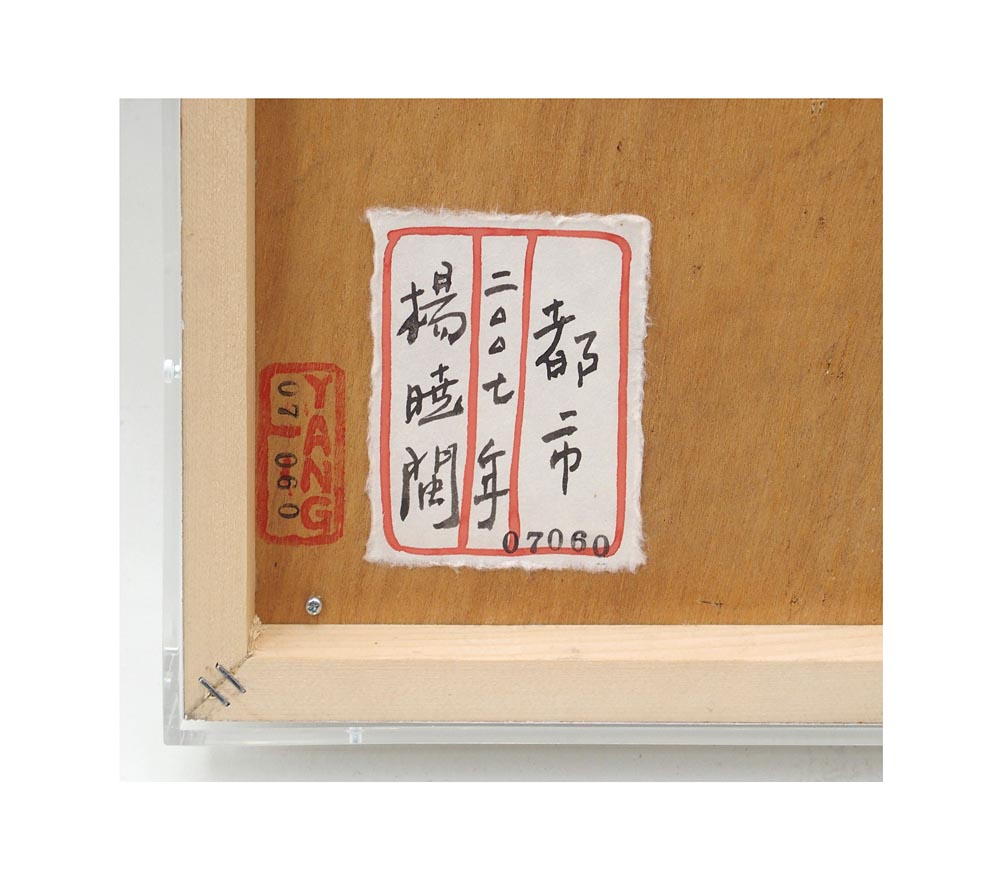 都市
二〇〇七年
楊暁閩
07060
YANG
07 060